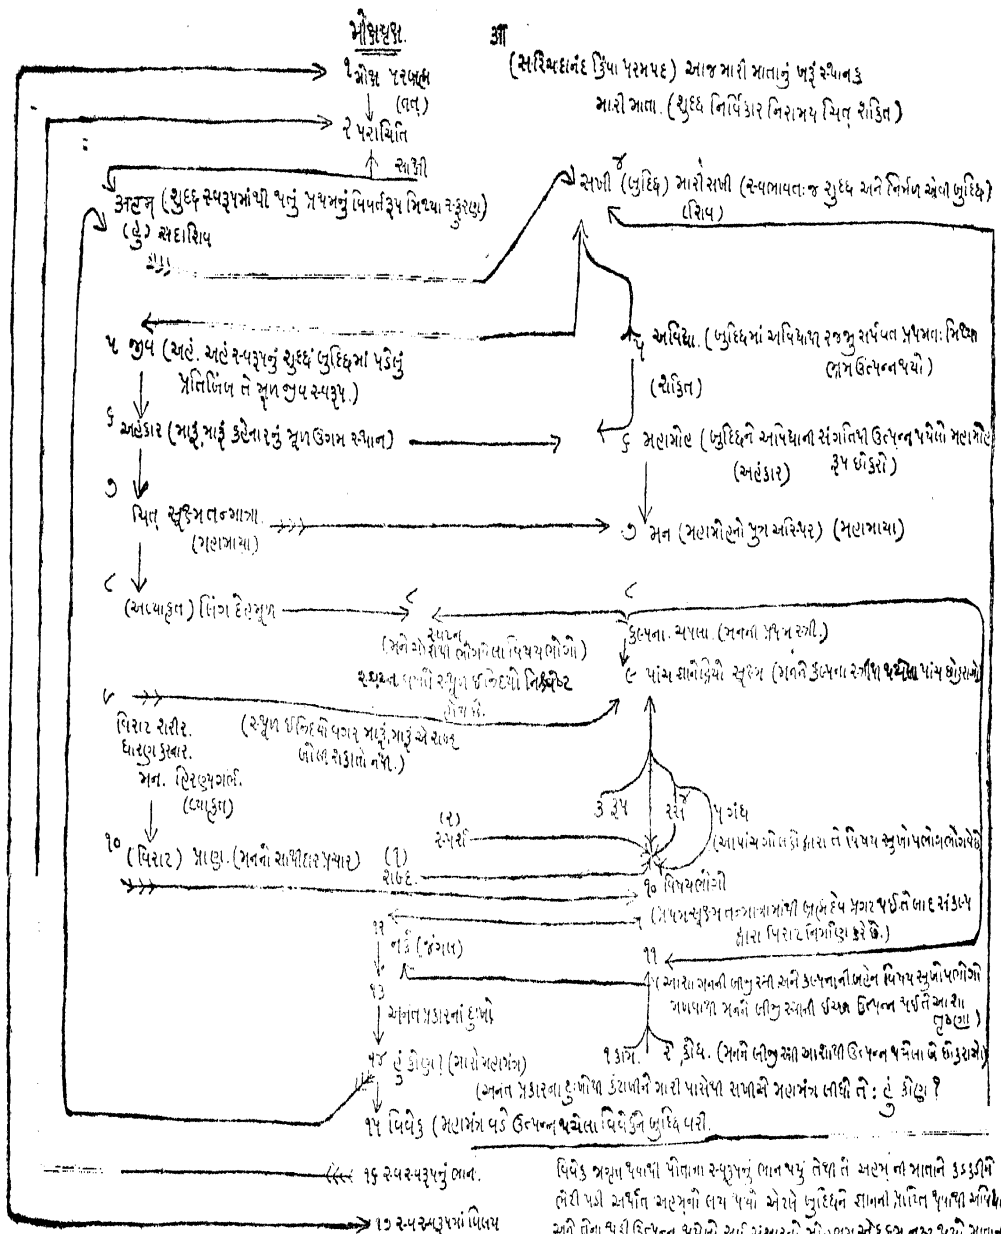 મોક્ષવૃક્ષ.
ॐ
૧ મોક્ષ પરબ્રહ્મ
(તત્)
(સચ્ચિદાનંદ કિંવા પરમપદ) આજ મારી માતાનું ખરૂં સ્થાનક
મારી માતા. (શુદ્ધ નિર્વિકાર નિરામય ચિત્ શક્તિ)
૨ પરાચિતિ
સાક્ષી
અહમ્ (શુદ્ધ સ્વરૂપમાંથી થતું પ્રથમનું વિવર્તરૂપ મિથ્યા સ્ફુરણ)
(હું) સદાશિવ
૪
સખી (બુદ્ધિ) મારી સખી (સ્વભાવતઃ જ શુદ્ધ અને નિર્મળ એવી બુદ્ધિ)
(શિવ)
૫ જીવ (અહં. અહં સ્વરૂપનું શુદ્ધ બુદ્ધિમાં પડેલું
પ્રતિબિંબ તે મૂળ જીવ સ્વરૂપ.)
૫ અવિદ્યા. (બુદ્ધિમાં અવિદ્યાથી રજ્જુ સર્પવત પ્રથમતઃ મિથ્યા
ભ્રમ ઉત્પન્ન થયો)
(શક્તિ)
૬ અહંકાર (મારૂં, મારૂં કહેનારનું મૂળ ઉગમ સ્થાન)
૬ મહામોહ (બુદ્ધિને અવિદ્યાની સંગતિથી ઉત્પન્ન થયેલો મહામોહ
(અહંકાર) રૂપ છોકરો)
૭ ચિત્ સૂક્ષ્મ તન્માત્રા.
(મહામાયા)
૭ મન (મહામોહનો પુત્ર અસ્થિર) (મહામાયા)
૮ (અવ્યાકૃત) લિંગ દેહમૂળ
૮ સ્વપ્ન
(મને ભોગવેલા વિષયભોગો)
સ્થૂળ ઈન્દ્રિયો નિશ્ચેષ્ટ
હોય છે.
૮ કલ્પના. ચપલા. (મનની પ્રથમ સ્ત્રી.)
૯ પાંચ જ્ઞાનેંદ્રિયો સૂક્ષ્મ (મનને કલ્પના સ્ત્રીથી થયેલા પાંચ છોકરાઓ)
૯
વિરાટ શરીર.
ધારણ કરનાર.
મન. હિરણ્યગર્ભ.
(વ્યાકૃત)
(સ્થૂળ ઈન્દ્રિયો વગર મારૂં, મારૂં એ શબ્દ
બોલી શકાતો નથી.)
૩ રૂપ
૪ રસ
૫ ગંધ
(૨)
સ્પર્શ
(૧)
શબ્દ.
(આ પાંચ ગોલકો દ્વારા તે વિષય સુખોપભોગ ભોગવે છે)
૧૦ (વિરાટ) પ્રાણ. (મનનો સાથીદાર પ્રચાર)
૧૦ વિષયભોગી
(પ્રથમ સૂક્ષ્મ તન્માત્રામાંથી બ્રહ્મદેવ પ્રગટ થઈ તે બાદ સંકલ્પ
દ્વારા વિરાટ નિર્માણ કરે છે.)
૧૨
નર્ક (જંગલ)
૧૧
આશા મનની બીજી સ્ત્રી અને કલ્પનાની બહેન વિષય સુખોપભોગો
મળવાથી મનને બીજી સ્ત્રીની ઈચ્છા ઉત્પન્ન થઈ તે આશા
તૃષ્ણા)
૧૩
અનંત પ્રકારનાં દુઃખો
૧ કામ. ૨ ક્રોધ. (મનને બીજી સ્ત્રી આશાથી ઉત્પન્ન થયેલા બે છોકરાઓ)
૧૪ હું કોણ? (મારો મહામંત્ર)
(અનંત પ્રકારના દુઃખોથી કંટાળીને મારી પાસેથી સખીએ મહામંત્ર લીધો તે: હું કોણ?
૧૫ વિવેક (મહામંત્ર વડે ઉત્પન્ન થયેલા વિવેકને બુદ્ધિ વરી.
૧૬ સ્વ સ્વરૂપનું ભાન.
વિવેક જાગૃત થવાથી પોતાના સ્વરૂપનું ભાન થયું તેથી તે અહમ્ ની માતાને કડકડીને
ભેટી પડી અર્થાત અહમ્નો લય થયો એટલે બુદ્ધિને જ્ઞાનની પ્રાપ્તિ થવાથી
૧૭ સ્વ સ્વરૂપમાં વિલય